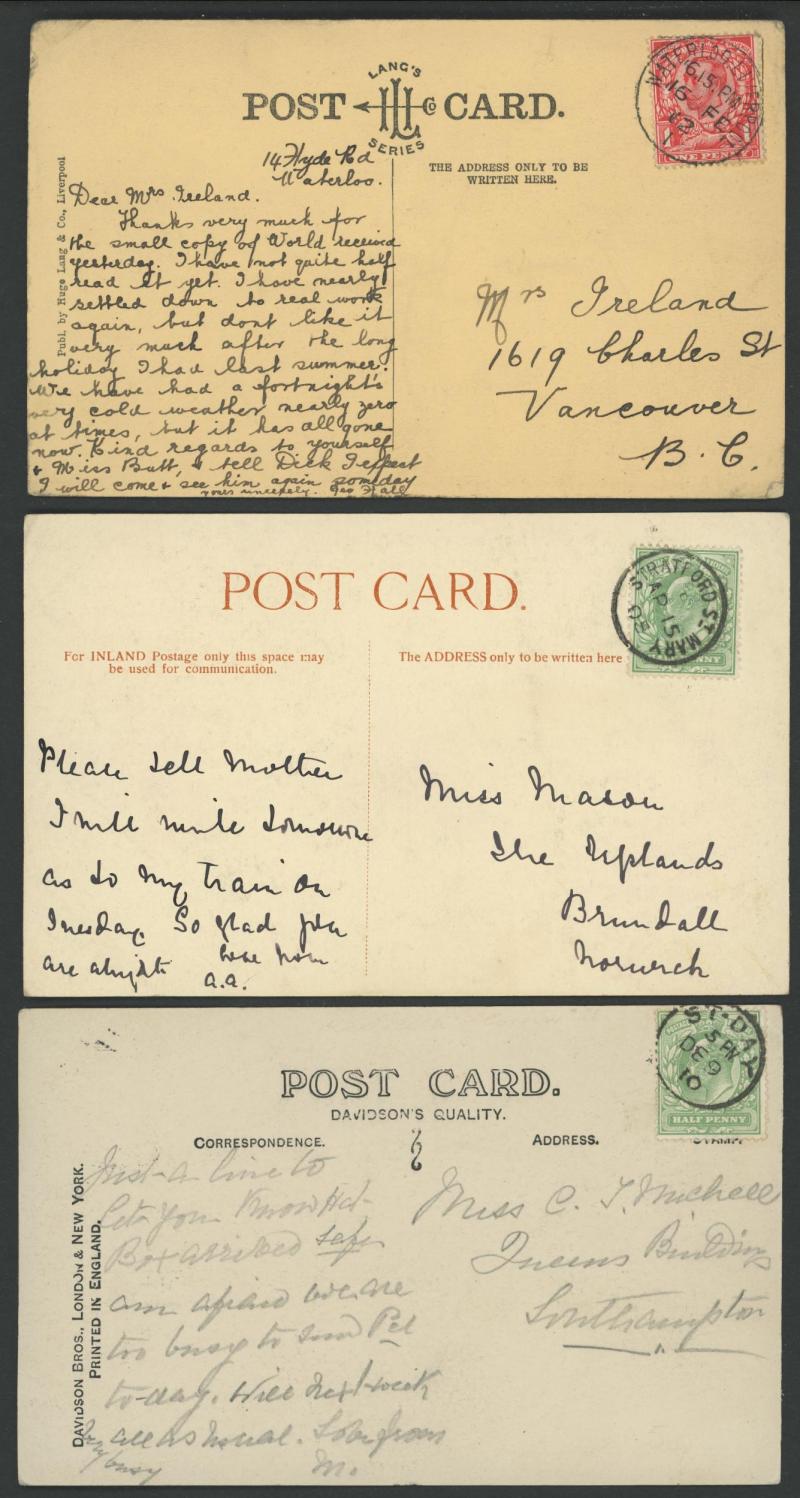 LANG'S
POST HL Co CARD.
SERIES
WATERLOO
6.15 PM
16 FE
12
ONE PENNY
THE ADDRESS ONLY TO BE
WRITTEN HERE.
Publ. by Hugo Lang & Co., Liverpool
14 Hyde Rd
Waterloo.
Dear Mrs Ireland.
Thanks very much for
the small copy of World received
yesterday. I have not quite half
read it yet. I have nearly
settled down to real work
again, but dont like it
very much after the long
holiday I had last summer.
We have had a fortnight's
very cold weather nearly zero
at times, but it has all gone
now. Kind regards to yourself
& Miss Butt, & tell Dick I expect
I will come & see him again someday
yours sincerely. Geo Hall
Mrs Ireland
1619 Charles St
Vancouver
B.C.
POST CARD.
STRATFORD ST. MARY
AP 15
05
PENNY
For INLAND Postage only this space may
be used for communication.
The ADDRESS only to be written here
Please tell Mother
I will write tomorrow
as to my train on
Tuesday. So glad you
are alright love from
a.a.
Miss Mason
The Uplands
Brundall
Norwich
POST CARD.
DAVIDSON'S QUALITY.
CORRESPONDENCE.
ADDRESS.
STAMP
ST. DAY
5 PM
DE 9
10
HALF PENNY
DAVIDSON BROS., LONDON & NEW YORK.
PRINTED IN ENGLAND.
Just a line to
let you know
Box arrived safe
am afraid we are
too busy to send Pel
to-day. Will next week
all as usual. Love from
M.
busy
Miss C. J. Michell
Queens Buildings
Southampton